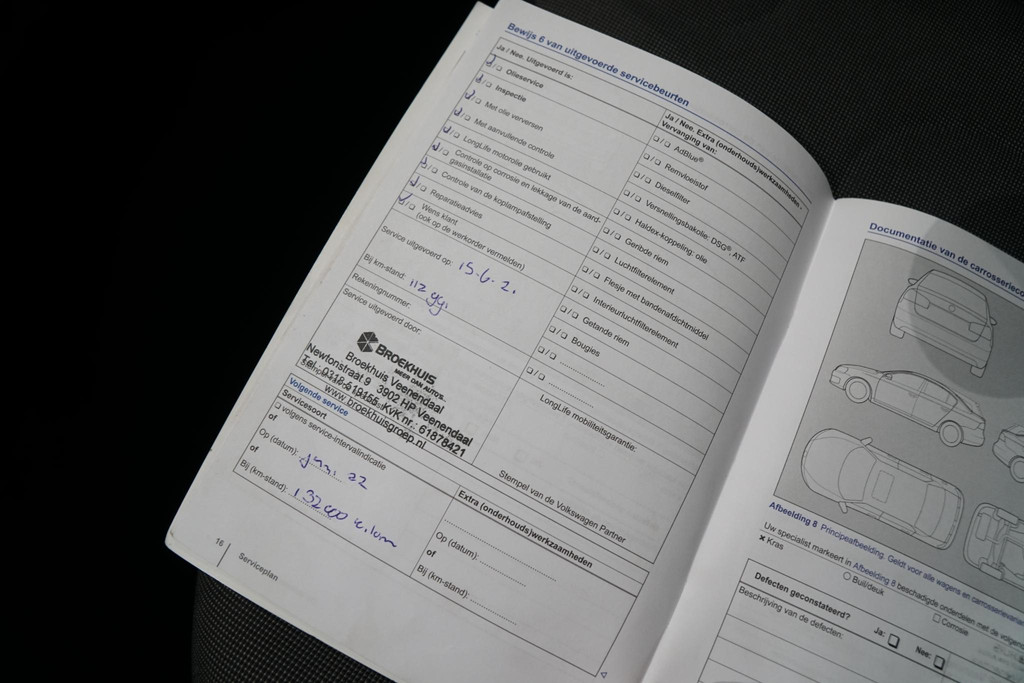 Bewijs 6 van uitgevoerde servicebeurten
Ja / Nee. Uitgevoerd is:
Olieservice
Inspectie
Met olie verversen
Met aanvullende controle
LongLife motorolie gebruikt
Controle op corrosie en lekkage van de aard-
gasinstallatie
Controle van de koplampafstelling
Reparatieadvies
Wens klant
(ook op de werkorder vermelden)
Service uitgevoerd op: 15.6.2.
Bij km-stand:
Rekeningnummer:
Service uitgevoerd door:
BROEKHUIS
MEER DAN AUTO'S
Broekhuis Veenendaal
Newtonstraat 9 3902 HP Veenendaal
Tel. 0318-519155 KvK nr.: 61878421
www.broekhuisgroep.nl
Ja / Nee. Extra (onderhouds)werkzaamheden -
Vervanging van:
AdBlue®
Remvloeistof
Dieselfilter
Versnellingsbakolie: DSG®, ATF
Haldex-koppeling: olie
Geribde riem
Luchtfilterelement
Flesje met bandenafdichtmiddel
Interieurluchtfilterelement
Getande riem
Bougies
LongLife mobiliteitsgarantie:
Stempel van de Volkswagen Partner
Volgende service
Servicesoort
volgens service-intervalindicatie
of
Op (datum): juni 22
of
Bij (km-stand): 132000
Extra (onderhouds)werkzaamheden
Op (datum):
of
Bij (km-stand):
16
Serviceplan
Documentatie van de
Afbeelding 8 Principeafbeelding. Geldt voor alle wagens en
Uw specialist markeert in Afbeelding 8 beschadigde onderdelen met de
× Kras
Buil/deuk
Corrosie
Defecten geconstateerd?
Ja:
Nee:
Beschrijving van de defecten: